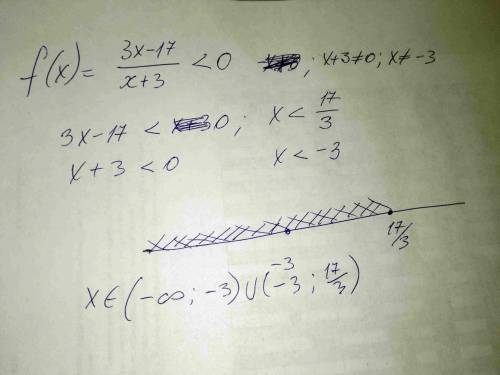 f(x) = (3x-17)/(x+3) < 0 ; x+3≠0; x≠ -3
3x-17 < 0; x < 17/3
x+3 < 0 x < -3
-3 17/3
x∈(-∞; -3)∪(-3; 17/3)